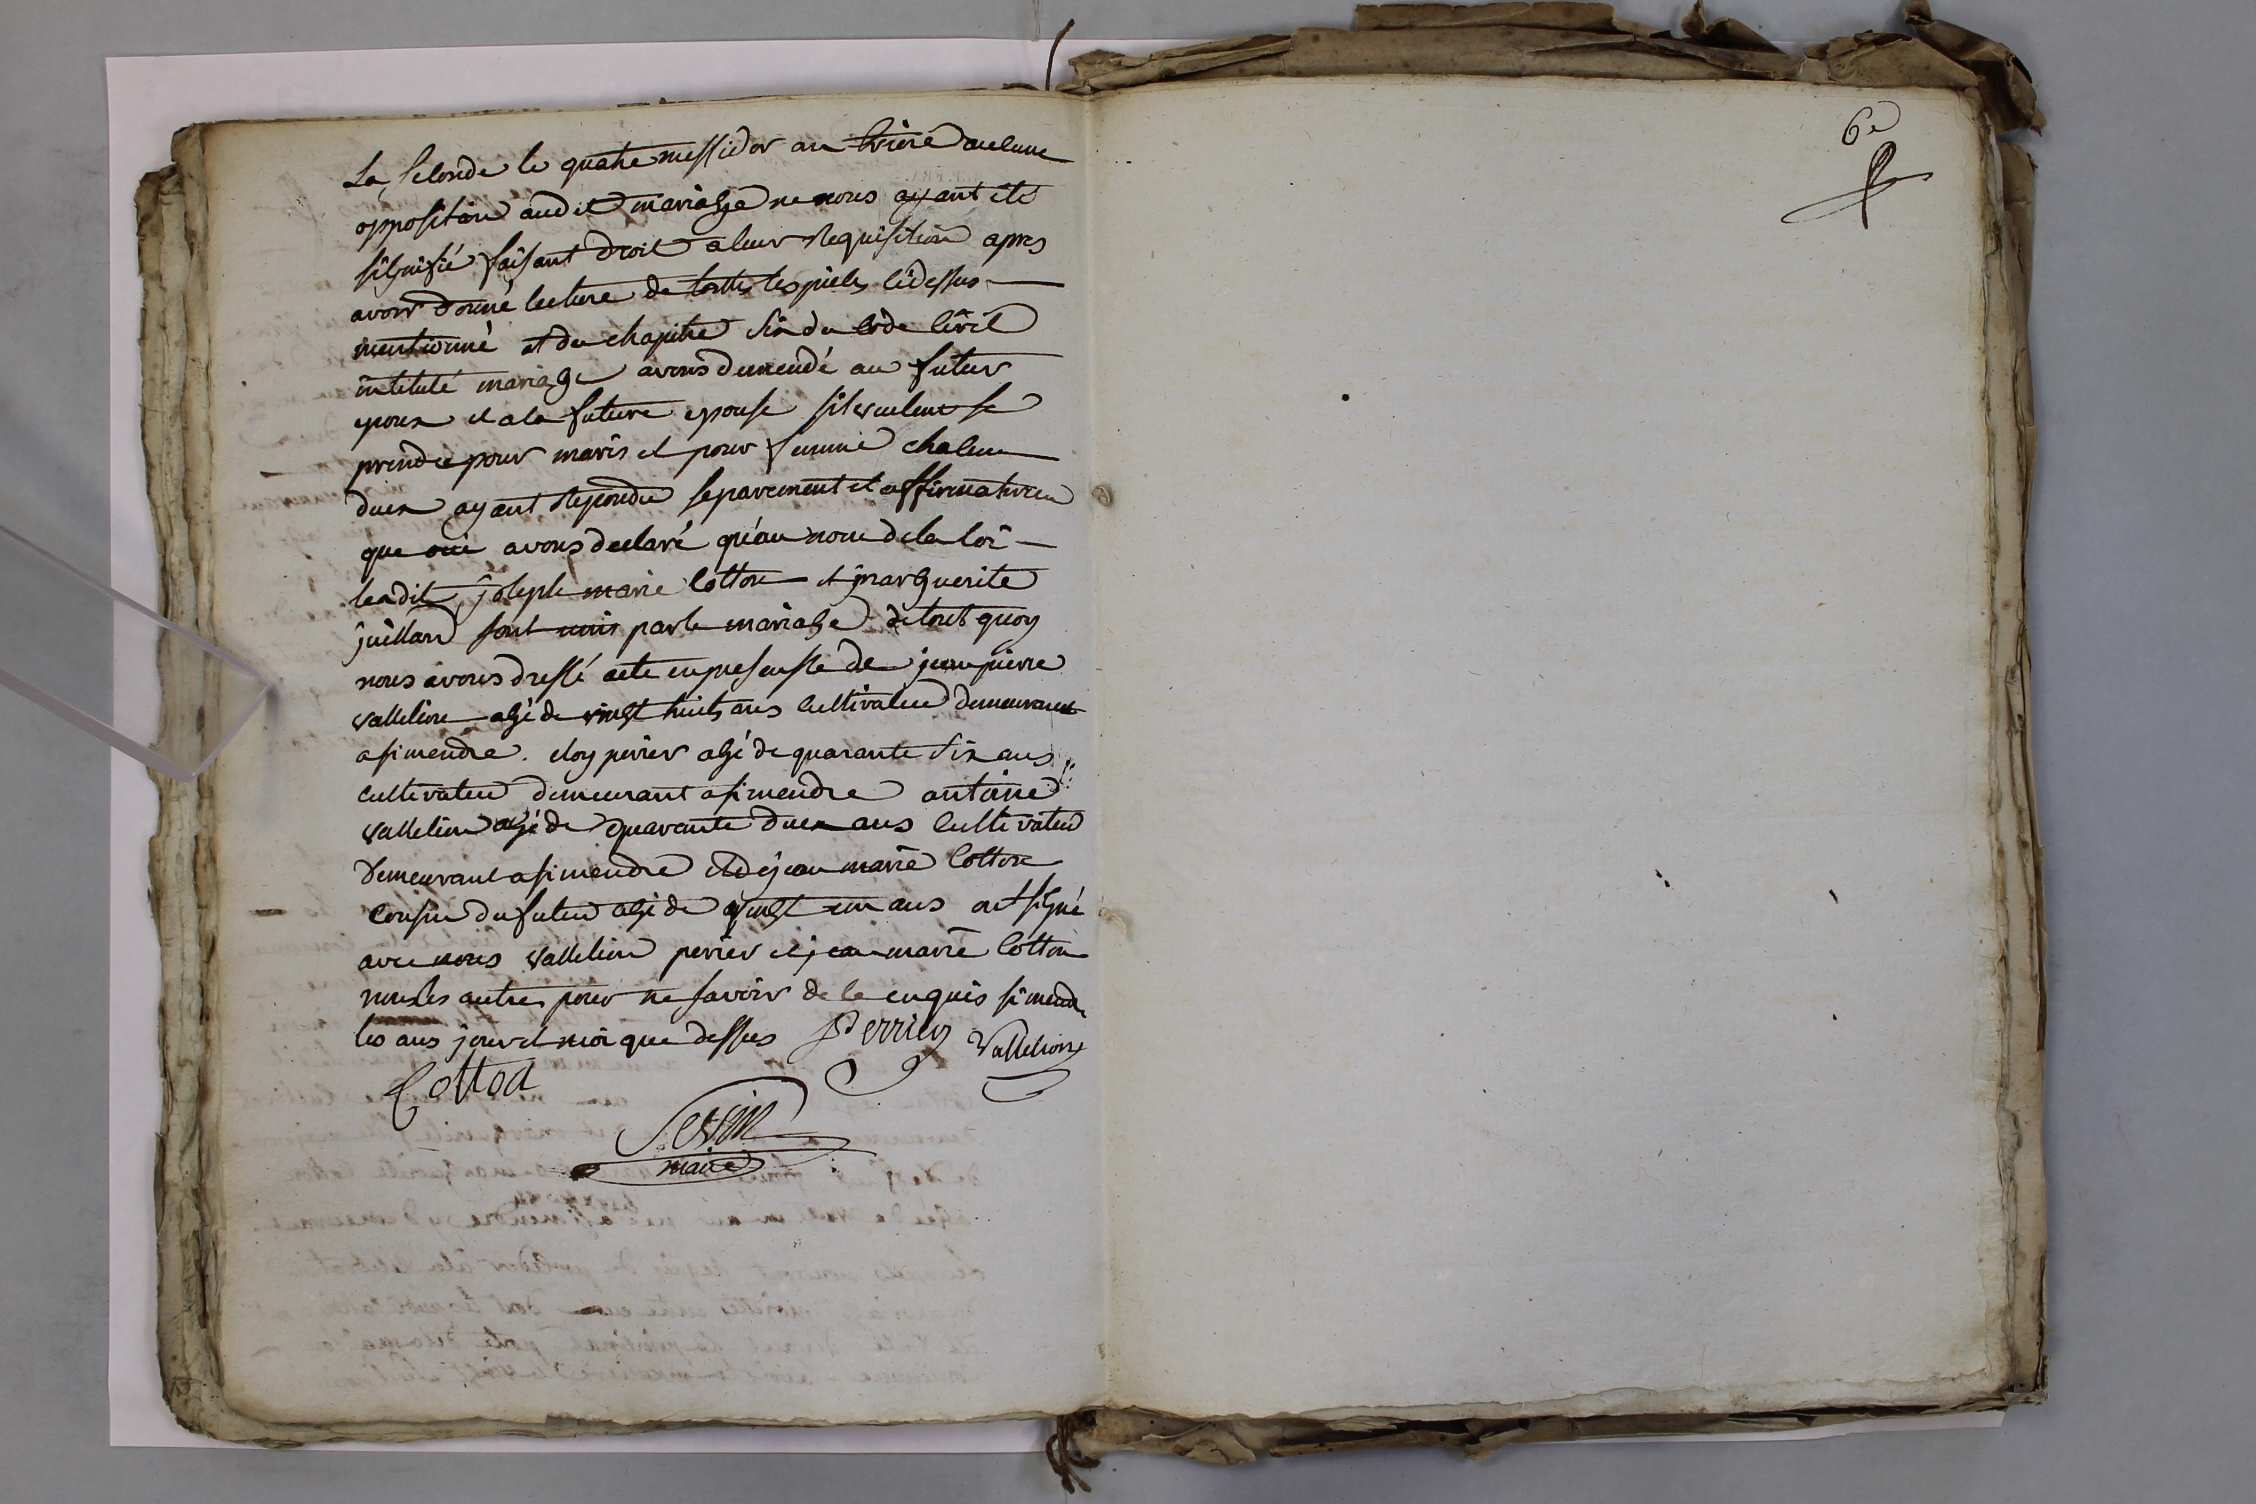 La seconde le quatre messidor an treize aucune
opposition audit mariage ne nous ayant été
signifié faisant droit a leur requisition apres
avoir donné lecture de toutte les pieces cidessus
mentionné et du chapitre six du code civil
intitulé mariage avons demendé au futur
epoux et a la future epouse sil veulent se
prendre pour maris et pour femme chacun
duex ayant repondu separement et affirmative
que oui avons declaré qu'au nom de la loi
leadit joseph marie Cotton et marguerite
juillard sont unis par le mariage de tout quoy
nous avons dressé acte en presensse de jean pierre
vallelion agé de vingt huit ans cultivateur demeurant
a simendre. eloy perier agé de quarante six ans
cultivateur demeurant a simendre antoine
vallelion agé de quarante duex ans cultivateur
demeurant a simendre et de jean marie Cotton
cousin du futur agé de vingt un ans ont signé
avec nous vallelion perier et jean marie Cotton
non les autres pour ne savoir de ce enquis simendre
les ans jour et moi que dessus Perrier Vallelion
Cotton
Sevin
maire
6e